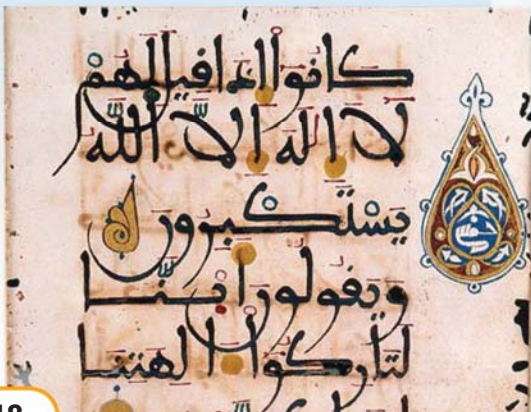 كانوا إذا قيل لهم
لا إله إلا الله
يستكبرون
ويقولون أئنا
لتاركوا آلهتنا
18